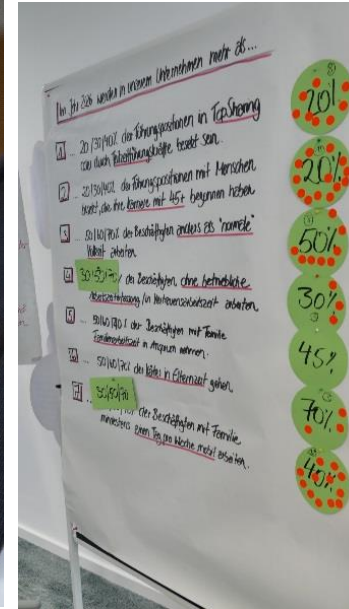 Im Jahr 2026 werden in unserem Unternehmen mehr als...
1 ... 20/30/40% der Führungspositionen in TopSharing
oder durch Teilzeitführungskräfte besetzt sein.
2 ... 20/30/40% der Führungspositionen mit Menschen
besetzt, die ihre Karriere mit 45+ begonnen haben
3 ... 50/60/70% der Beschäftigten anders als "normale"
Vollzeit arbeiten.
4 30/50/70 der Beschäftigten, ohne betriebliche
Arbeitszeiterfassung/in Vertrauensarbeitszeit arbeiten.
5 der Beschäftigten mit Familie
in Anspruch nehmen.
6 ... 50/60/70% der Väter in Elternzeit gehen.
7 ... 30/50/70
der Beschäftigten mit Familie
mindestens einen Tag pro Woche mobil arbeiten.
20%
20%
50%
30%
45%
70%
40%